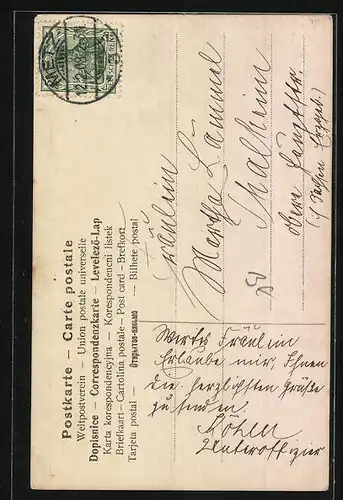 Postkarte – Carte postale
Weltpostverein – Union postale universelle
Dopisnice – Correspondenzkarte – Levelező-Lap
Karta korespondencyjna – Korespondencni listek
Briefkaart – Cartolina postale – Post card – Brefkort
Tarjeta postal — Открытое письмо — Bilhete postal
METZ
Fräulein
Martha Lämmel
Thalheim
obere Hauptstr.
Wertes Fräulein
Erlaube mir, Ihnen
die herzlichsten Grüße
zu senden.
Unteroffizier